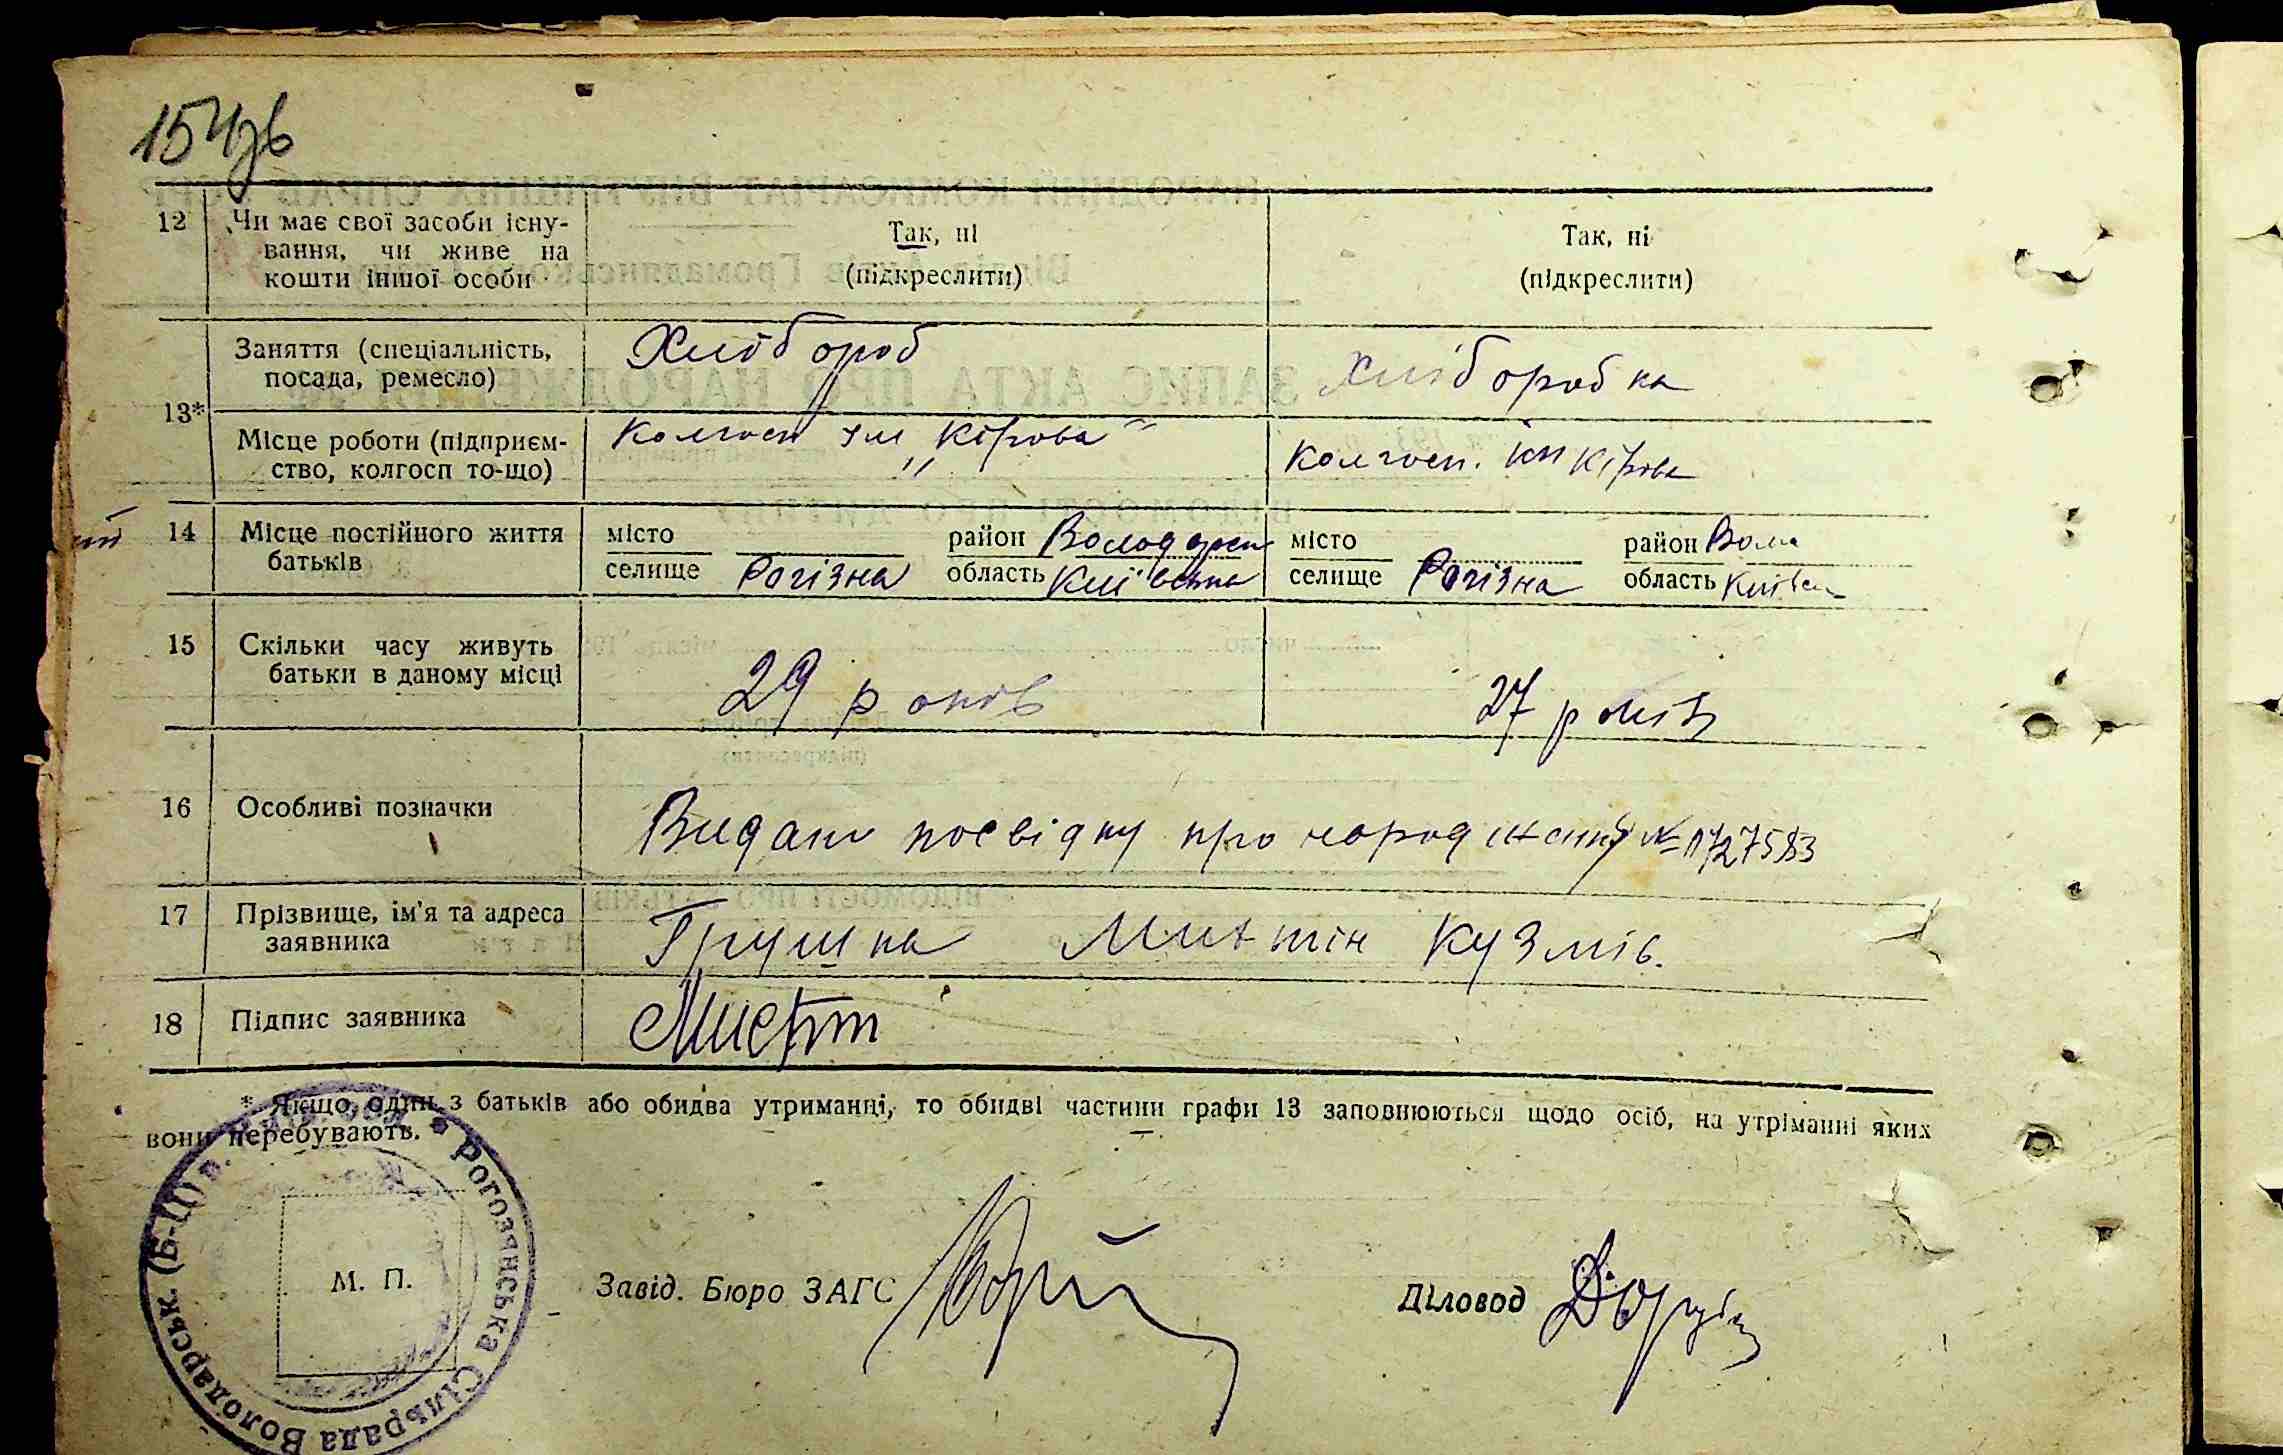 154зв
12 Чи має свої засоби існу-
вання, чи живе на
кошти іншої особи
Так, ні
(підкреслити)
Так, ні
(підкреслити)
13*
Заняття (спеціальність,
посада, ремесло)
Хлібороб
Хліборобка
Місце роботи (підприєм-
ство, колгосп то-що)
Колгосп ім „Кірова"
Колгосп. ім Кірова
14 Місце постійного життя
батьків
місто
селище Рогізна
район Володарсь
область Київська
місто
селище Рогізна
район Воло
область Київсь
15 Скільки часу живуть
батьки в даному місці
29 років
27 років
16 Особливі позначки
Видано посвідку про народження № 1727583
17 Прізвище, ім'я та адреса
заявника
Грушка Кузмів.
18 Підпис заявника
* Якщо, один з батьків або обидва утриманці, то обидві частини графи 13 заповнюються щодо осіб, на утріманні яких
вони перебувають.
Рогозянська Сільрада Володарськ. (Б-Ц) р.
М. П.
Завід. Бюро ЗАГС
Діловод